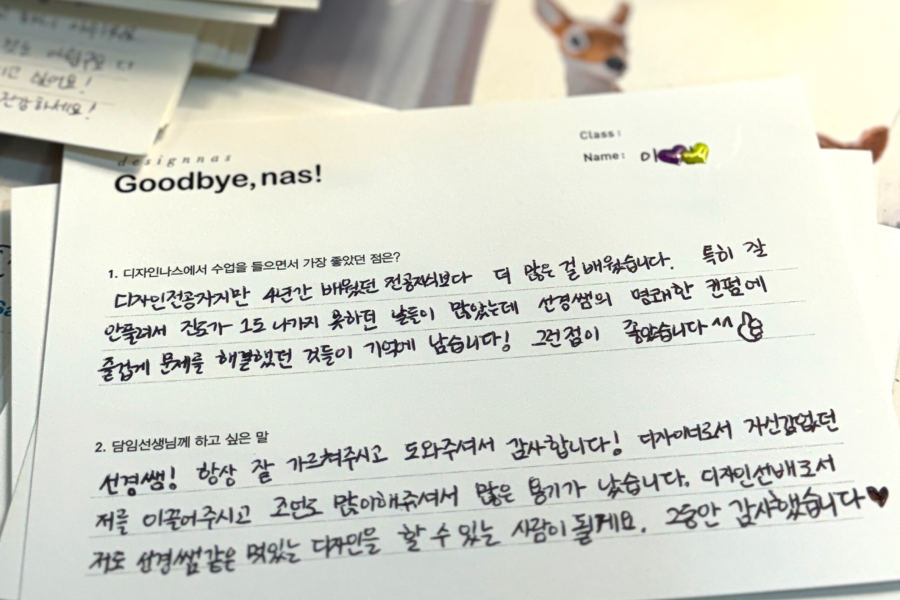 designnas
Goodbye, nas!
Class:
Name: 이
1. 디자인나스에서 수업을 들으면서 가장 좋았던 점은?
디자인전공자지만 4년간 배웠던 전공지식보다 더 많은 걸 배웠습니다. 특히 잘
안풀려서 진도가 1도 나가지 못하던 날들이 많았는데 선경쌤의 명쾌한 컨펌에
즐겁게 문제를 해결했던 것들이 기억에 남습니다! 그런점이 좋았습니다^^
2. 담임선생님께 하고 싶은 말
선경쌤! 항상 잘 가르쳐주시고 도와주셔서 감사합니다! 디자이너로서 자신감없던
저를 이끌어주시고 조언도 많이해주셔서 많은 용기가 났습니다. 디자인선배로서
저도 선경쌤같은 멋있는 디자인을 할 수 있는 사람이 될게요. 그동안 감사했습니다♥
싶어요!
건강하세요!